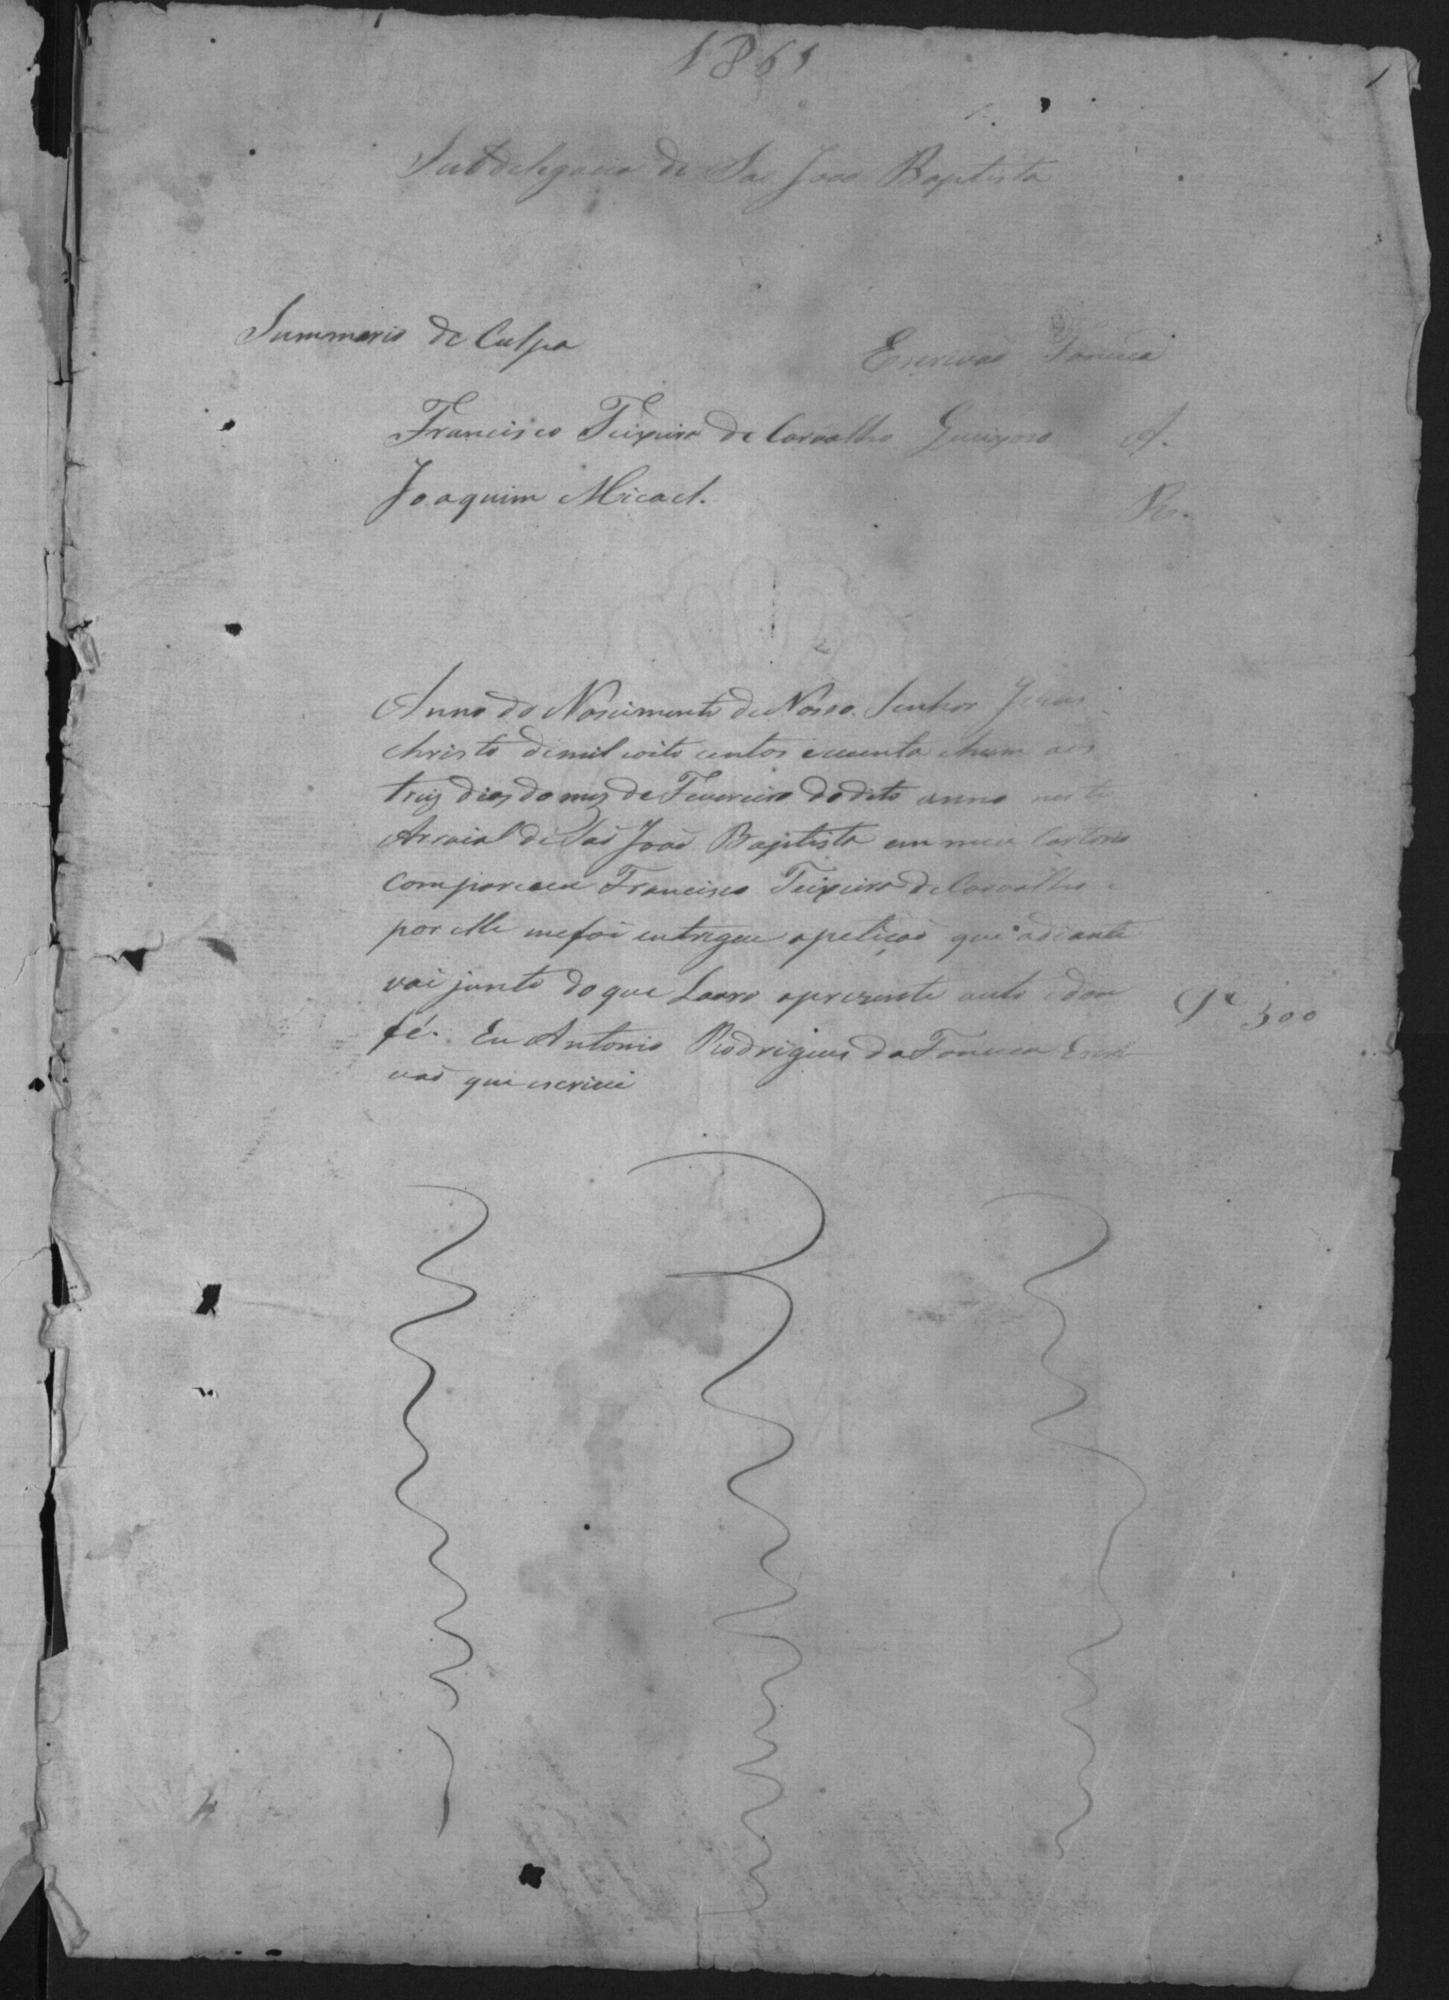 1861
1
Subdelegacia de Sao Joao Baptista
Summario de Culpa
Escrivaõ Fonseca
Francisco Teixeira de Carvalho Queixoso A.
Joaquim Micael. R.
Anno do Nascimento de Nosso Senhor Jesus
Christo de mil oito centos e secenta e hum aos
treis dias do mez de Fevereiro do dito anno neste
Arraial de Saõ Joaõ Baptista em meu Cartorio
compareceu Francisco Teixeira de Carvalho e
por elle me foi entregue a petiçaõ que adiante
vai junto do que Lavro a prezente auto e dou
fé. Eu Antonio Rodrigues da Fonseca Escri
vaõ que escrivi
300